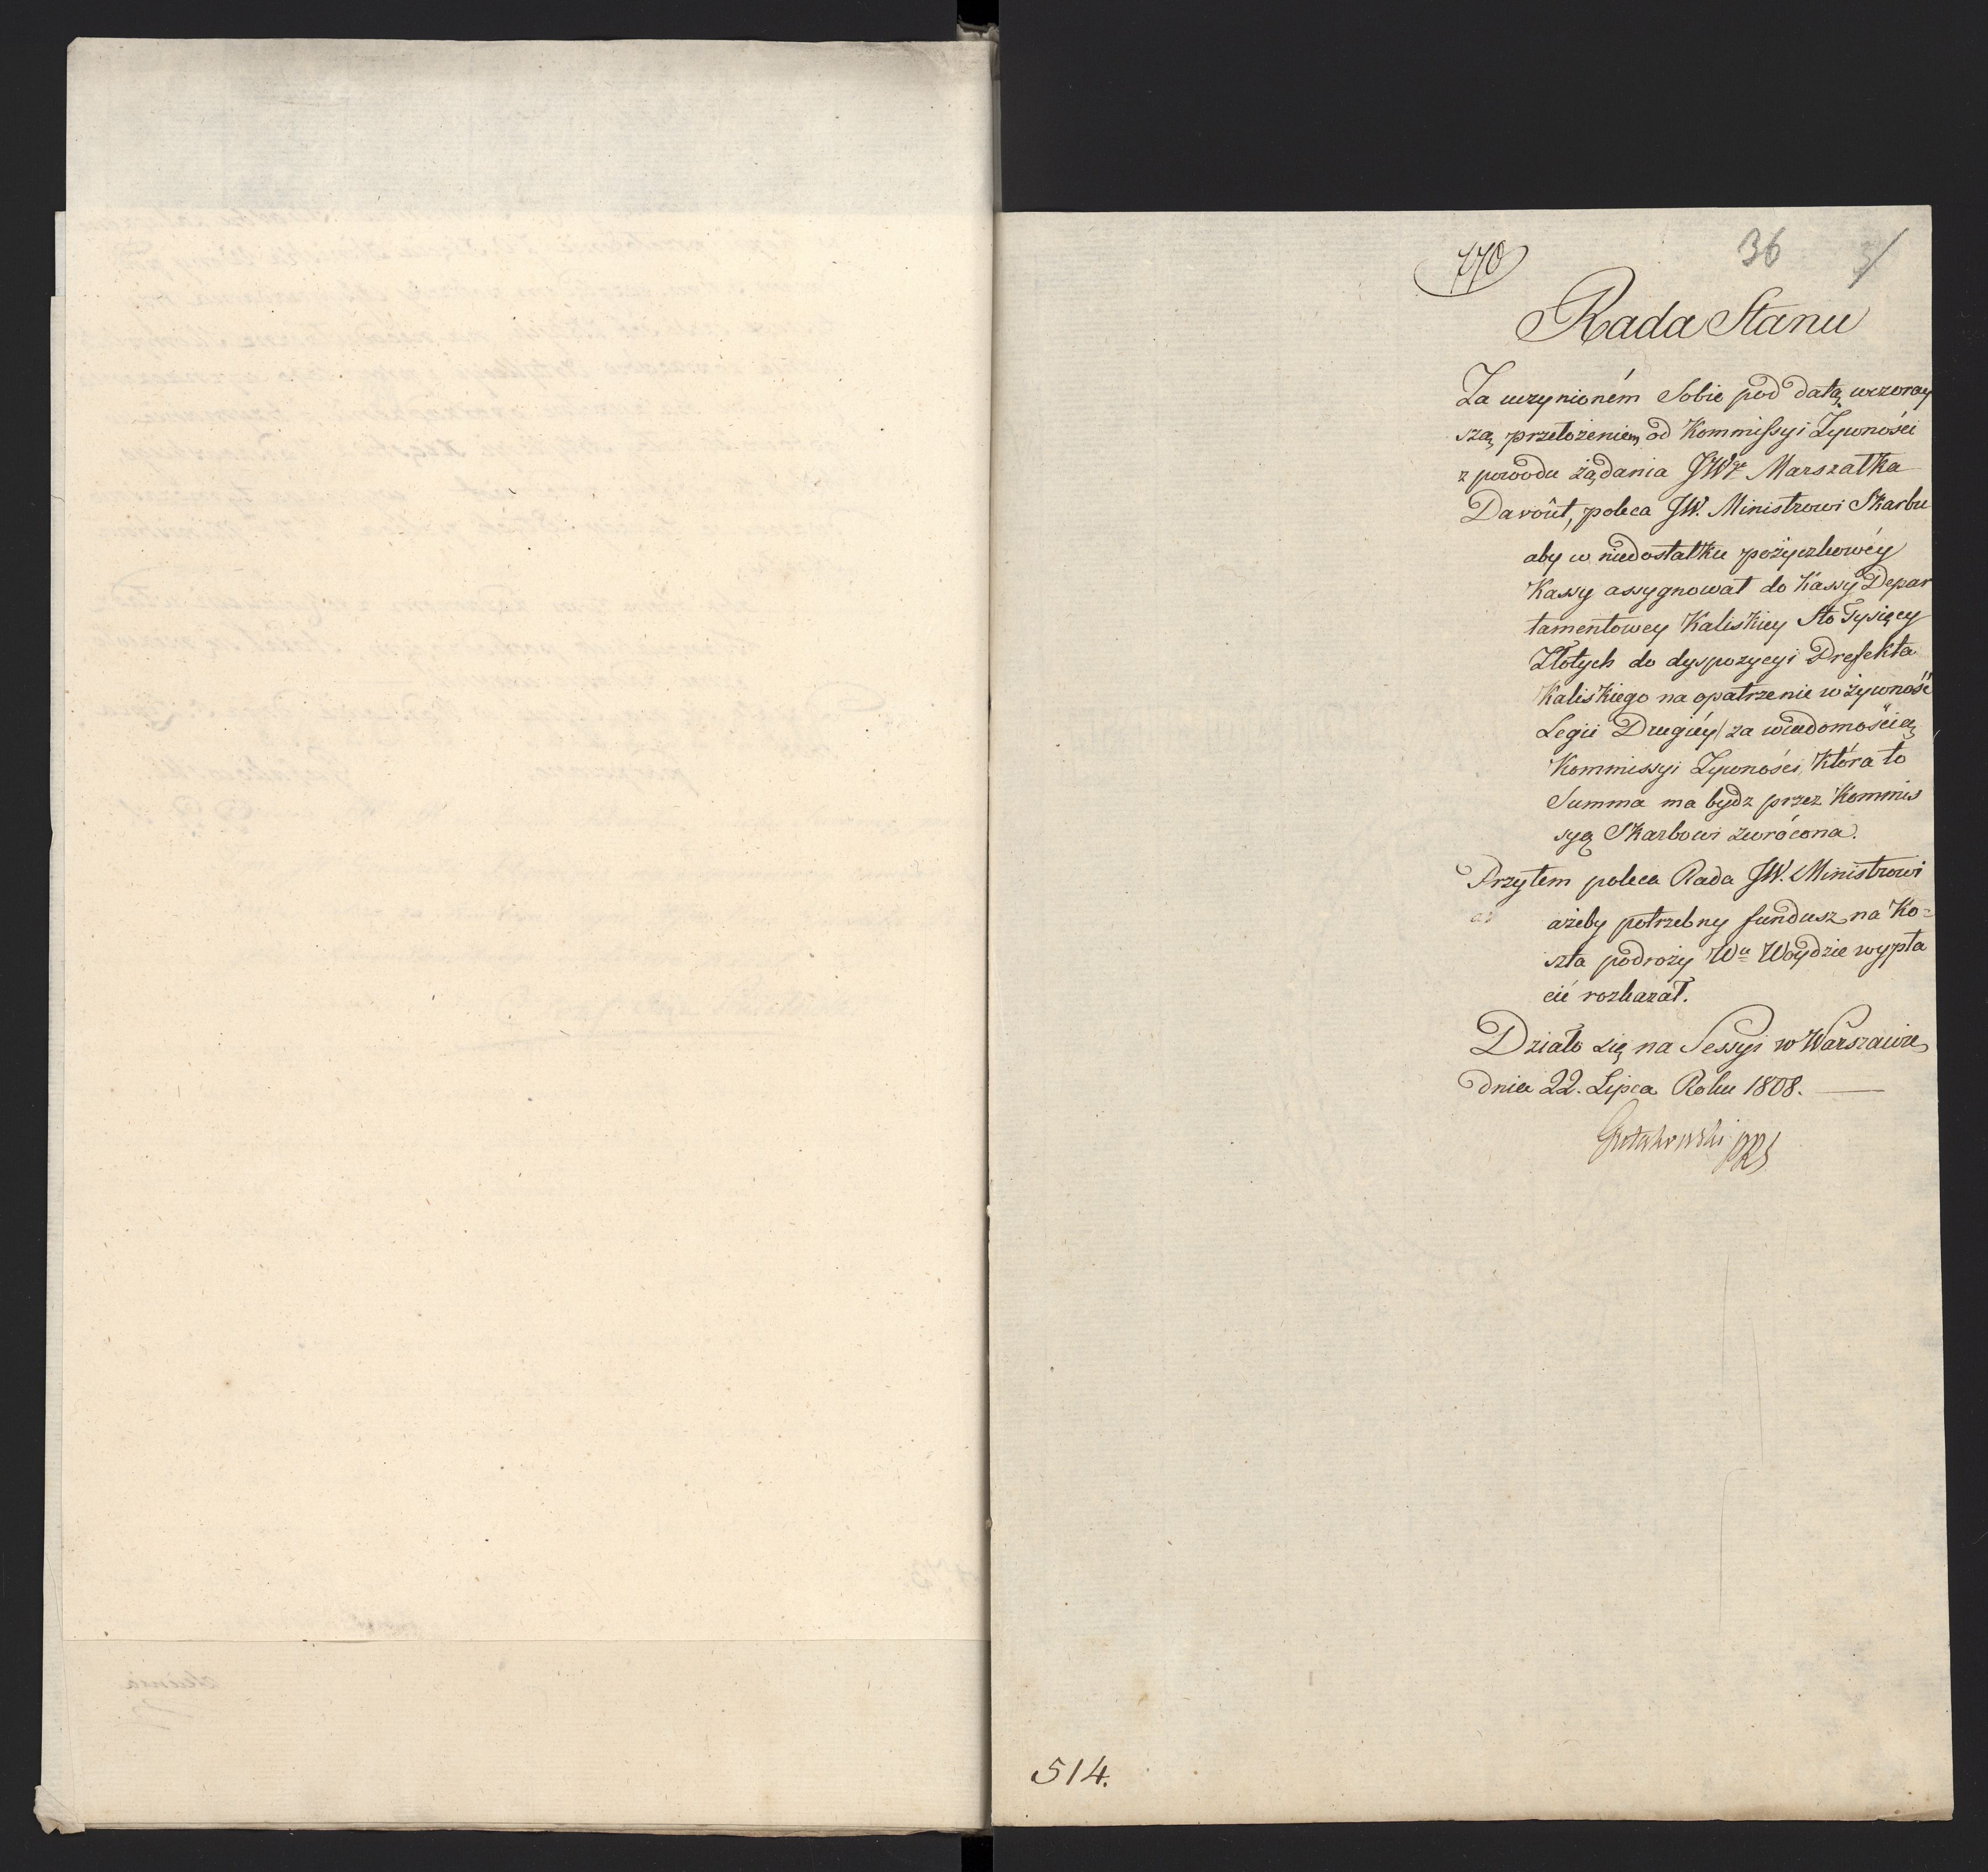 770
36
Rada Stanu
Za uczynioném Sobie pod datą wczoray
szą przełożeniem od Kommissyi Żywności
z powodu żądania JWgo Marszałka
Davoût, poleca JW. Ministrowi Skarbu
aby w niedostatku pożyczkowéy
Kassy assygnował do Kassy Depar
tamentowey Kaliskiey Sto Tysięcy
Złotych do dyspozycyi Prefekta
Kaliskiego na opatrzenie w żywność
Legii Drugiéy za wiadomością
Kommissyi Żywności, Która to
Summa ma bydz przez Kommis
syą Skarbowi zwrócona.
Przytem poleca Rada JW. Ministrowi
ażeby potrzebny fundusz na Ko=
szta podroży Wu Woydzie wypła
cić rozkazał.
Działo się na Sessyi w Warszawie
dnia 22. Lipca Roku 1808.
514.